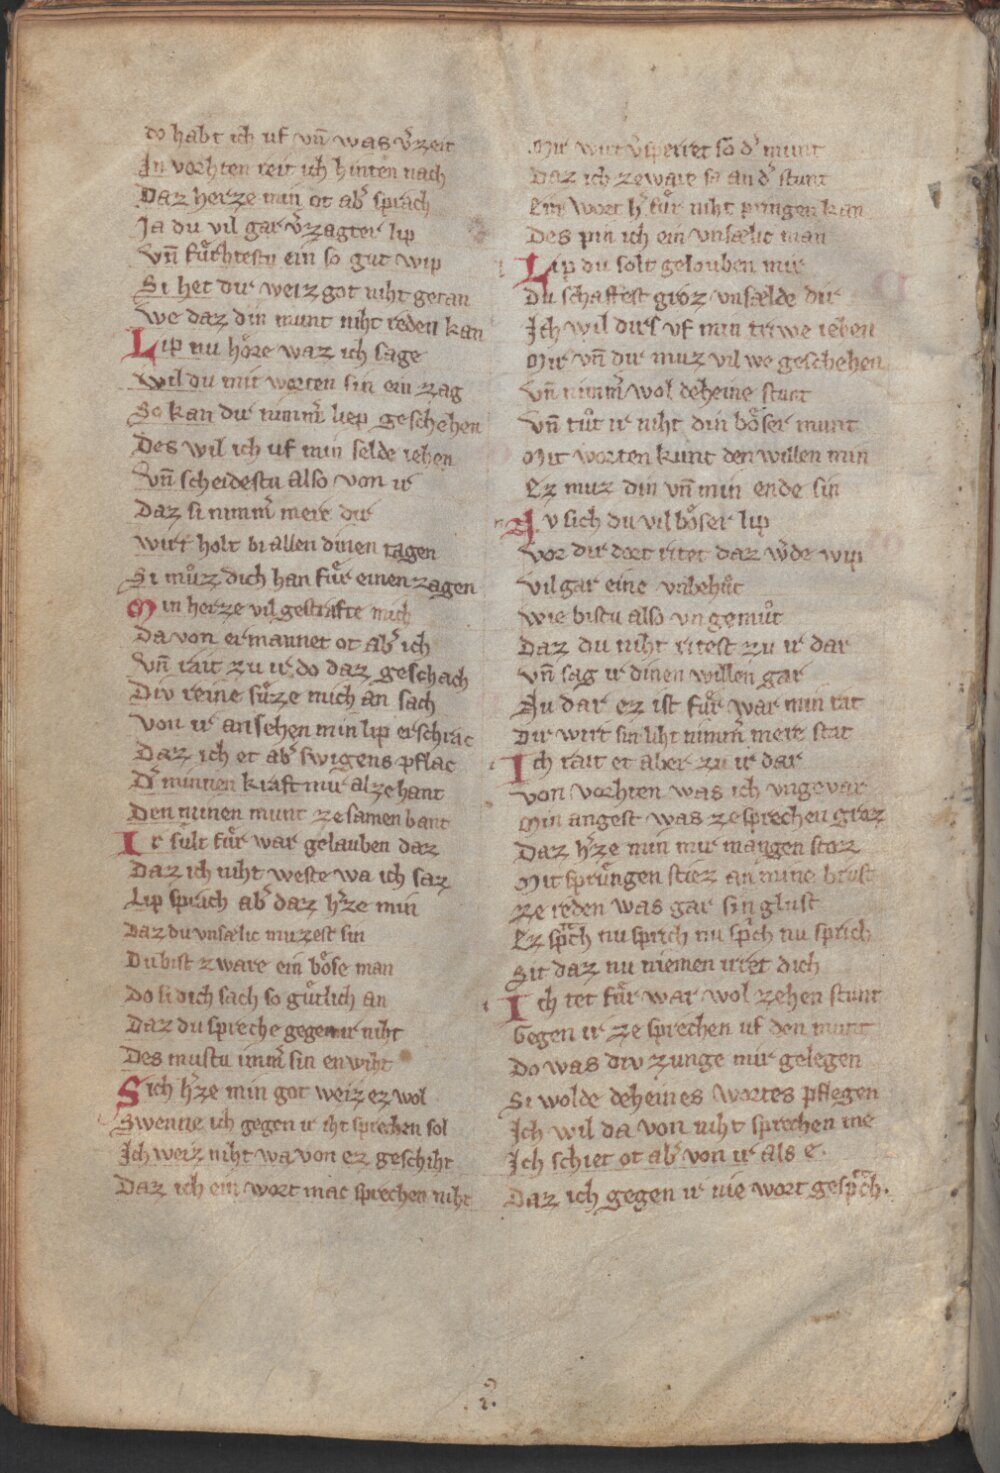 do habt ich uf vn̄ was v̓zeit
In vorhten reit ich hinten nach
Daz herze min ot ab̓ sprach
Ja du vil gar v̓zagter lip
Vn̄ fuͤrhtestu ein so gut wip
Si het dir weizgot niht getan
We daz din munt niht reden kan
Lip nu hoͤre waz ich sage
Wil du mit worten sin ein zag
So kan dir nimm̓ liep geschehen
Des wil ich uf min selde iehen
Vn̄ scheidestu also von ir
Daz si nimm̓ mere dir
wirt holt bi allen dinen tagen
Si muͦz dich han fuͤr einen zagen
Min herze vil gestrafte mich
Da von ermannet ot ab̓ ich
Vn̄ rait zu ir do daz geschach
Div reine suͤze mich an sach
Von ir ansehen min lip erschrac
Daz ich et ab̓ swigens pflac
D̓ minnen kraft mir alzehant
Den minen munt zesamen bant
Ir sult fuͤr war gelauben daz
Daz ich niht weste wa ich saz
Lip sprach ab̓ daz h̓ze min
Daz du vnsælic muzest sin
Du bist zware ein boͤse man
Do si dich sach so guͤtlich an
Daz du spreche gegen ir niht
Des mustu imm̓ sin enwiht
Sich h̓ze min got weiz ez wol
Swenne ich gegen ir iht sprechen sol
Ich weiz niht wa von ez geschiht
Daz ich ein wort mac sprechen niht
Mir wirt v̓sperret so d̓ munt
Daz ich zeware sa an d̓ stunt
Ein wort h̓ fuͤr niht pringen kan
Des pin ich ein vnsælic man
Lip du solt gelouben mir
Du schaffest groz vnsælde dir
Ich wil dirs vf min triwe iehen
Mir vn̄ dir muz vil we geschehen
Vn̄ nimm̓ wol deheine stunt
Vn̄ tuͦt ir niht din boͤser munt
Mit worten kunt den willen min
Ez muz din vn̄ min ende sin
Nv sich du vil boͤser lip
Vor dir dort ritet daz w̓de wip
Vil gar eine vnbehuͦt
Wie bistu also vngemuͦt
Daz du niht ritest zu ir dar
Vn̄ sag ir dinen willen gar
Nu dar ez ist fuͤr war min rat
Dir wirt sin liht nimm̓ mere stat
Ich rait et aber zu ir dar
Von vorhten was ich vngevar
Min angest was ze sprechen groz
Daz h̓ze min mir mangen stoz
Mit spruͤngen stiez an mine brust
Ze reden was gar sin glust
Ez spͣch nu sprich nu spͣch nu sprich
Sit daz nu niemen irret dich
Ich tet fuͤr war wol zehen stunt
Gegen ir ze sprechen uf den munt
Do was div zunge mir gelegen
Si wolde deheines wortes pflegen
Ich wil da von niht sprechen me
Ich schiet ot ab̓ von ir als e.
Daz ich gegen ir nie wort gespͣch.